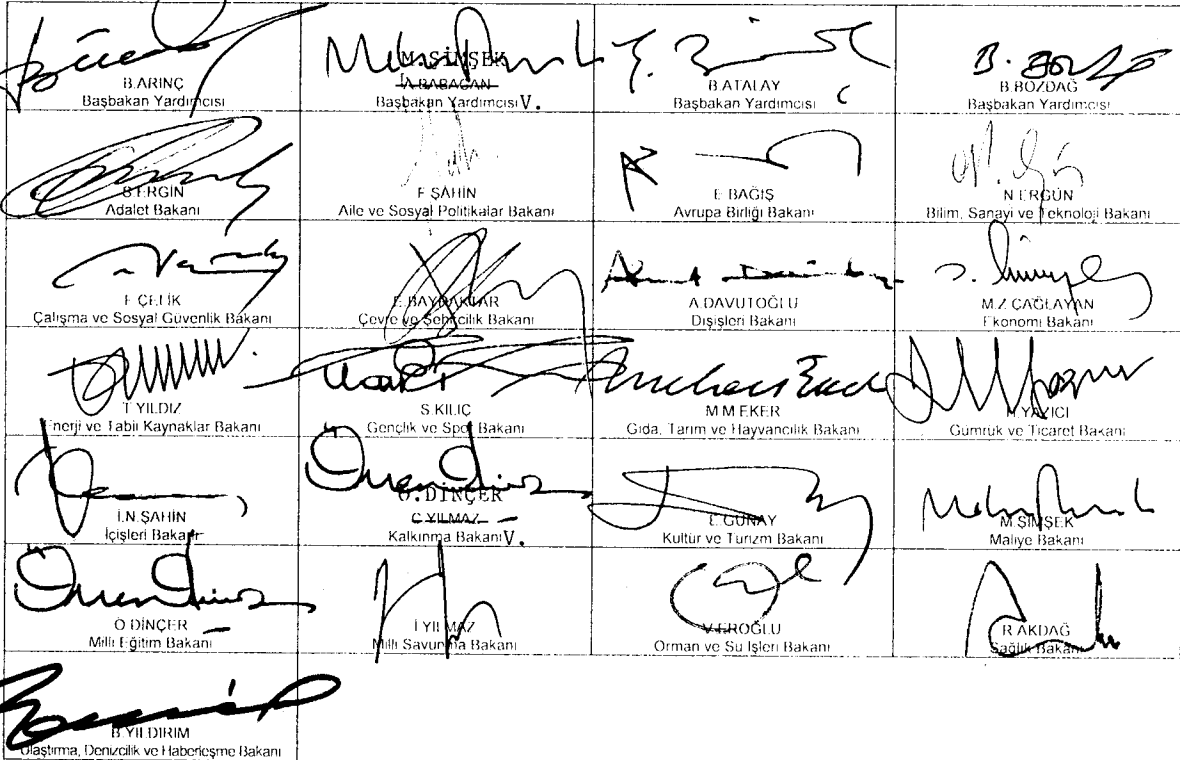 B.ARINÇ
Başbakan Yardımcısı
M.ŞİMŞEK
A.BABACAN
Başbakan Yardımcısı V.
B.ATALAY
Başbakan Yardımcısı
B. BOZDAĞ
B.BOZDAĞ
Başbakan Yardımcısı
S.ERGİN
Adalet Bakanı
F.ŞAHİN
Aile ve Sosyal Politikalar Bakanı
E.BAĞIŞ
Avrupa Birliği Bakanı
N.ERGÜN
Bilim, Sanayi ve Teknoloji Bakanı
F.ÇELİK
Çalışma ve Sosyal Güvenlik Bakanı
E.BAYRAKTAR
Çevre ve Şehircilik Bakanı
A.DAVUTOĞLU
Dışişleri Bakanı
M.Z.ÇAĞLAYAN
Ekonomi Bakanı
T.YILDIZ
Enerji ve Tabii Kaynaklar Bakanı
S.KILIÇ
Gençlik ve Spor Bakanı
M.M.EKER
Gıda, Tarım ve Hayvancılık Bakanı
H.YAZICI
Gümrük ve Ticaret Bakanı
İ.N.ŞAHİN
İçişleri Bakanı
Ö.DİNÇER
C.YILMAZ
Kalkınma Bakanı V.
E.GÜNAY
Kültür ve Turizm Bakanı
M.ŞİMŞEK
Maliye Bakanı
Ö.DİNÇER
Milli Eğitim Bakanı
İ.YILMAZ
Milli Savunma Bakanı
V.EROĞLU
Orman ve Su İşleri Bakanı
R.AKDAĞ
Sağlık Bakanı
B.YILDIRIM
Ulaştırma, Denizcilik ve Haberleşme Bakanı